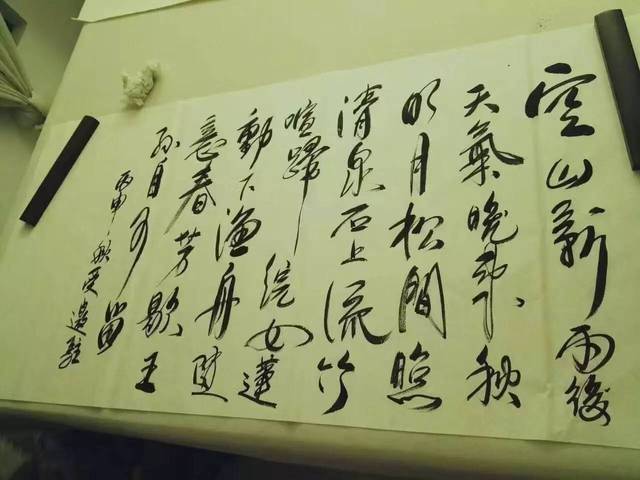 空山新雨後
天氣晚來秋
明月松間照
清泉石上流竹
喧歸浣女蓮
動下漁舟隨
意春芳歇王
孫自可留
丙申秋